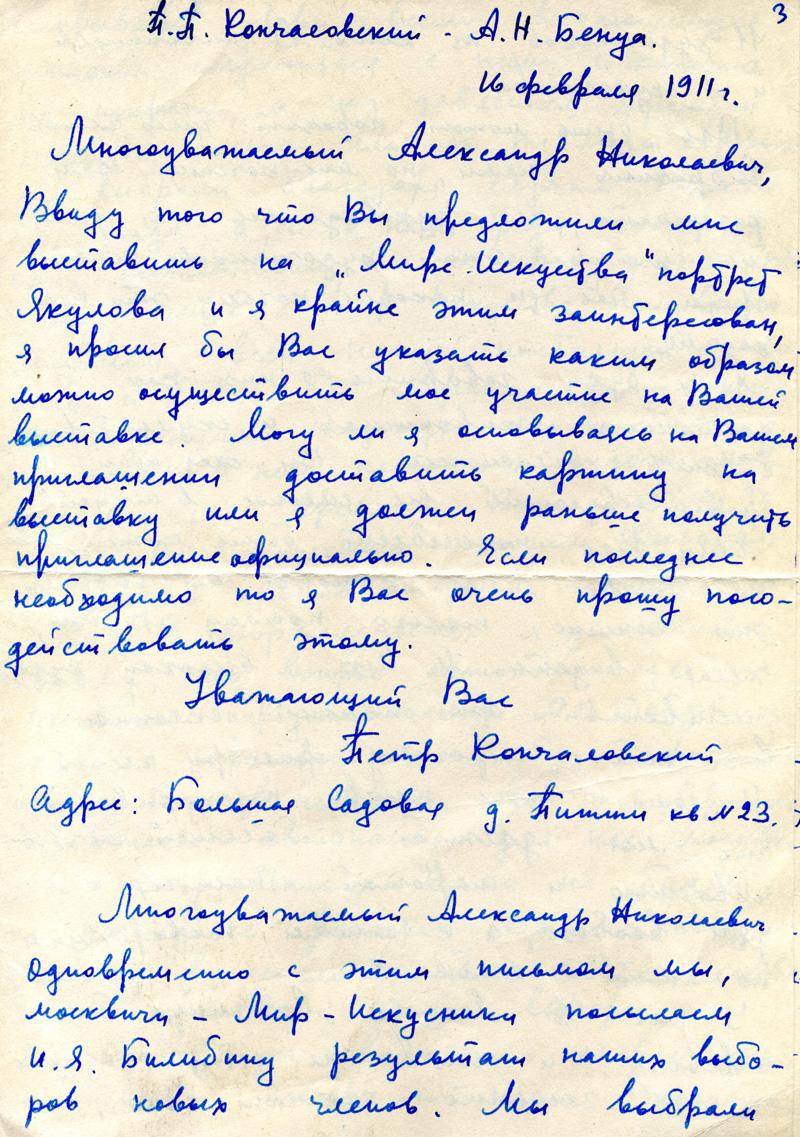 3
П.П. Кончаловский - А.Н. Бенуа.
16 февраля 1911 г.
Многоуважаемый Александр Николаевич,
Ввиду того что Вы предложили мне
выставить на „Мире Искуства" портрет
Якулова и я крайне этим заинтересован,
я просил бы Вас указать каким образом
можно осуществить мое участие на Вашей
выставке. Могу ли я основываясь на Вашем
приглашении доставить картину на
выставку или я должен раньше получить
приглашение официально. Если последнее
необходимо то я Вас очень прошу посо-
действовать этому.
Уважающий Вас
Петр Кончаловский
Адрес: Большая Садовая д. Пигит кв N 23.
Многоуважаемый Александр Николаевич
Одновременно с этим письмом мы,
москвичи - Мир - Искусники посылаем
И.Я. Билибину результат наших выбо-
ров новых членов. Мы выбрали